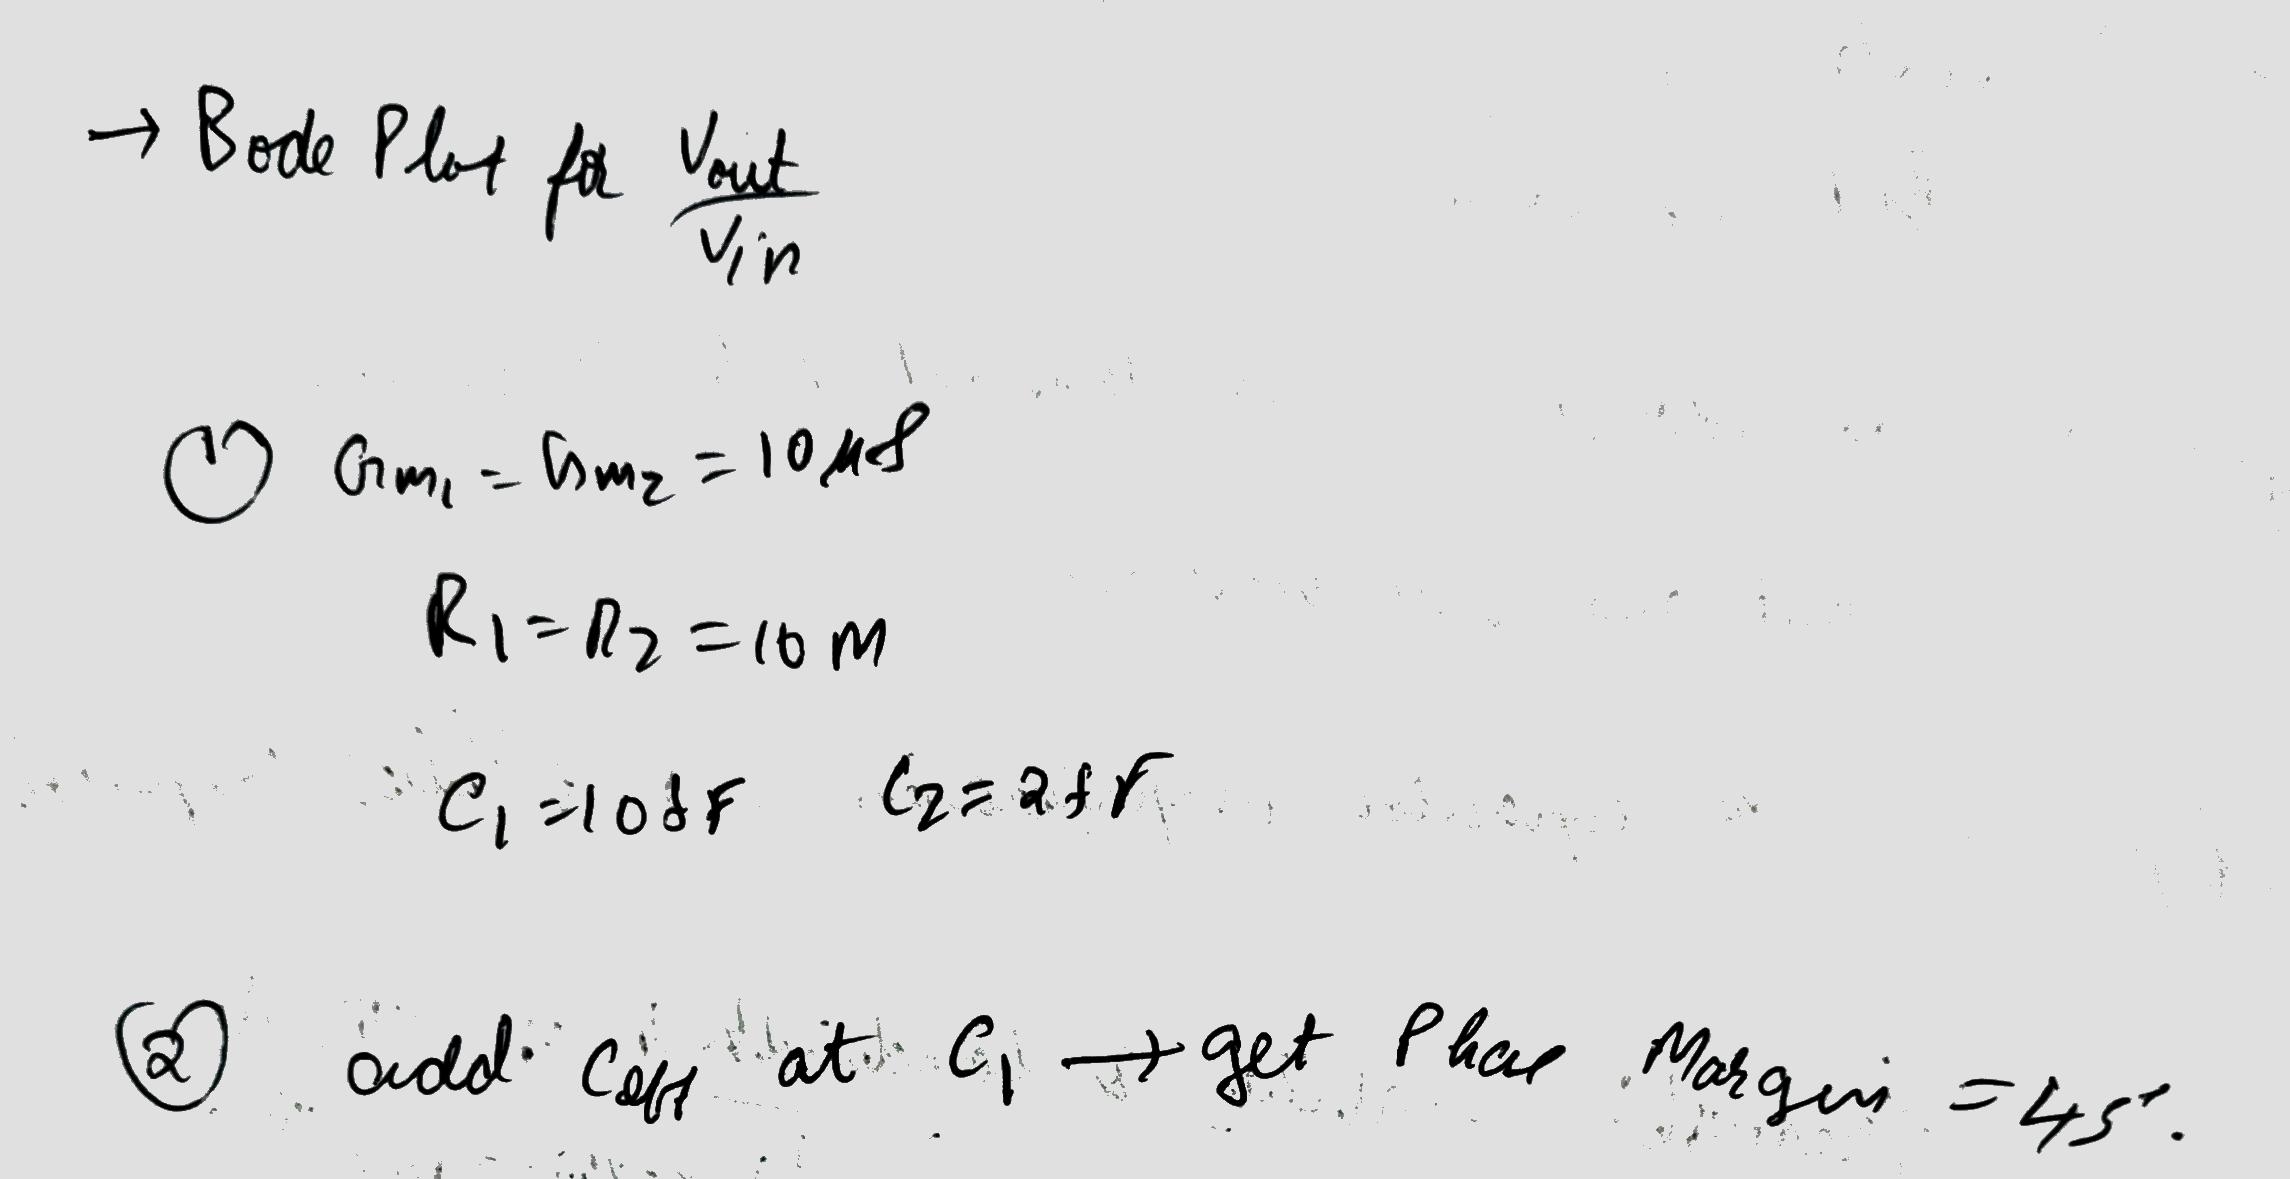 → Bode Plot for Vout/Vin
① Gm1 = Gm2 = 10 µS
R1 = R2 = 10 M
C1 = 10fF C2 = 2fF
② add at C1 → get Phase Margin = 45°.